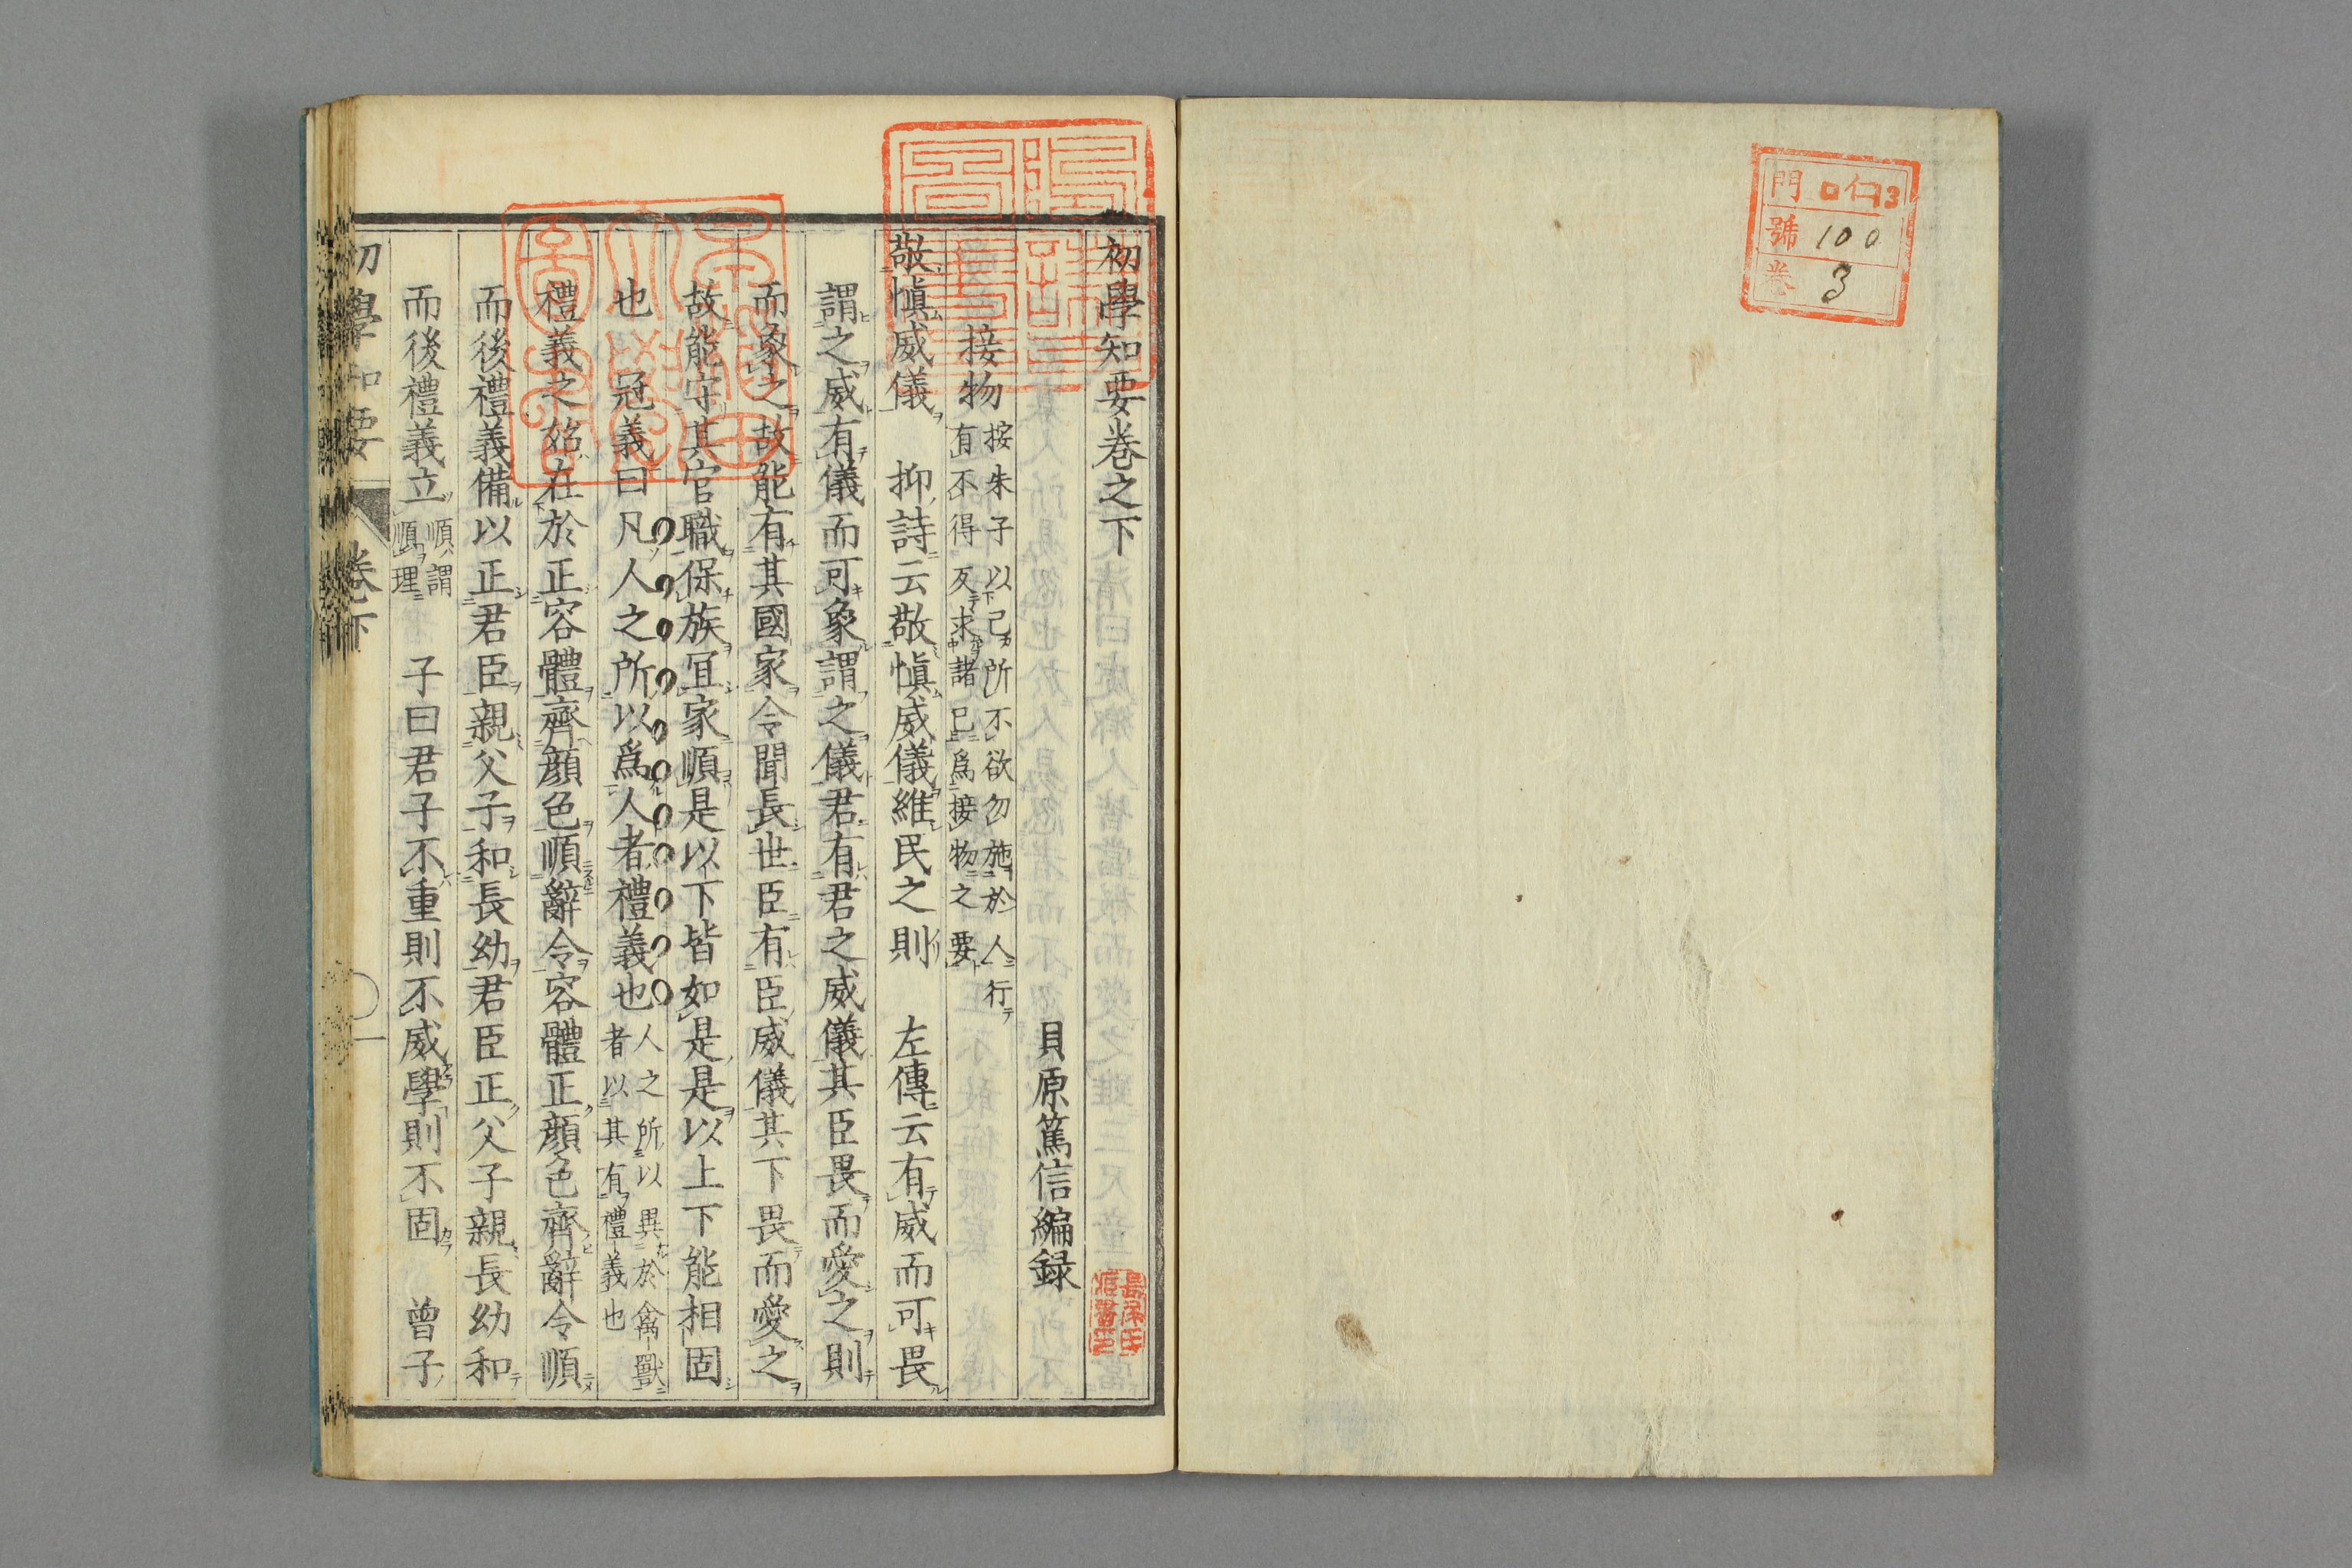 門 ロ仁13
號 100
卷 3
初學知要卷之下
貝原篤信編録
接物 按朱子以己所不欲勿施於人行
有不得反求諸己爲接物之要
敬愼威儀 抑詩云敬愼威儀維民之則 左傳云有威而可畏
謂之威有儀而可象謂之儀君有君之威儀其臣畏而愛之則
而象之故能有其國家令聞長世臣有臣威儀其下畏而愛之
故能守其官職保族宜家順是以下皆如是是以上下能相固
也 冠義曰凡人之所以爲人者禮義也 人之所以異於禽獸
者以其有禮義也
禮義之始在於正容體齊顔色順辭令容體正顔色齊辭令順
而後禮義備以正君臣親父子和長幼君臣正父子親長幼和
而後禮義立 順謂
順理 子曰君子不重則不威學則不固 曽子
初學知要 卷下 一